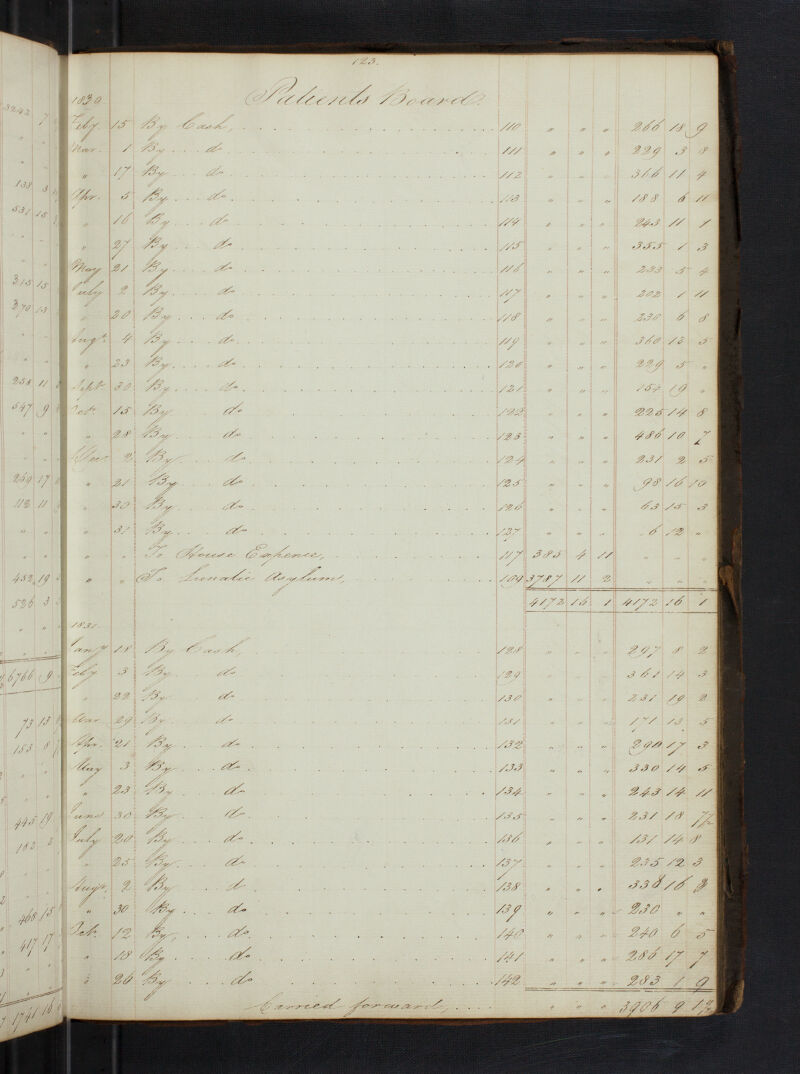 123.
1830
Patients Board.
Feby 15 By Cash, 110 " " " 266 18 9
Mar. 1 By do 111 " " " 229 3 8
" 17 By do 112 " " " 366 11 4
Apr. 5 By do 113 " " " 188 6 11
" 16 By do 114 " " " 243 11 1
" 27 By do 115 " " " 355 1 3
May 21 By do 116 " " " 233 5 4
July 2 By do 117 " " " 202 1 11
" 20 By do 118 " " " 230 6 8
Augt. 4 By do 119 " " " 360 13 5
" 23 By do 120 " " " 229 5 "
Sept. 30 By do 121 " " " 154 19 "
Octr. 15 By do 122 " " " 225 14 8
" 28 By do 123 " " " 486 10 7
Decr. 2 By do 124 " " " 231 2 5
" 21 By do 125 " " " 98 16 10
" 30 By do 126 " " " 63 15 3
" 31 By do 127 " " " 6 12 "
" " To House Expence, 117 385 4 11 " " "
" " To Lunatic Asylum, 109 3787 11 2 " " "
4172 16 1 4172 16 1
1831
Jany 18 By Cash, 128 " " " 297 8 2
Feby 3 By do 129 " " " 361 14 3
" 22 By do 130 " " " 231 19 2
Mar. 29 By do 131 " " " 171 13 5
Apr. 21 By do 132 " " " 290 17 3
May 3 By do 133 " " " 330 14 5
" 23 By do 134 " " " 243 14 11
June 30 By do 135 " " " 231 18 7½
July 20 By do 136 " " " 131 14 8
" 25 By do 137 " " " 235 12 3
Augt. 2 By do 138 " " " 338 16 2
" 30 By do 139 " " " 230 " "
Octr. 12 By, do 140 " " " 240 6 5
" 18 By do 141 " " " 286 17 7
" 26 By do 142 " " " 283 1 9
Carried forward, " " " 3906 9 1½
3242 7
138 3
531 15
315 15
270 13
258 11
547 9
269 17
112 11
452 19
526 3
6766 9
73 13
153 8
445 19
182 2
468 15
417 17
1741 16